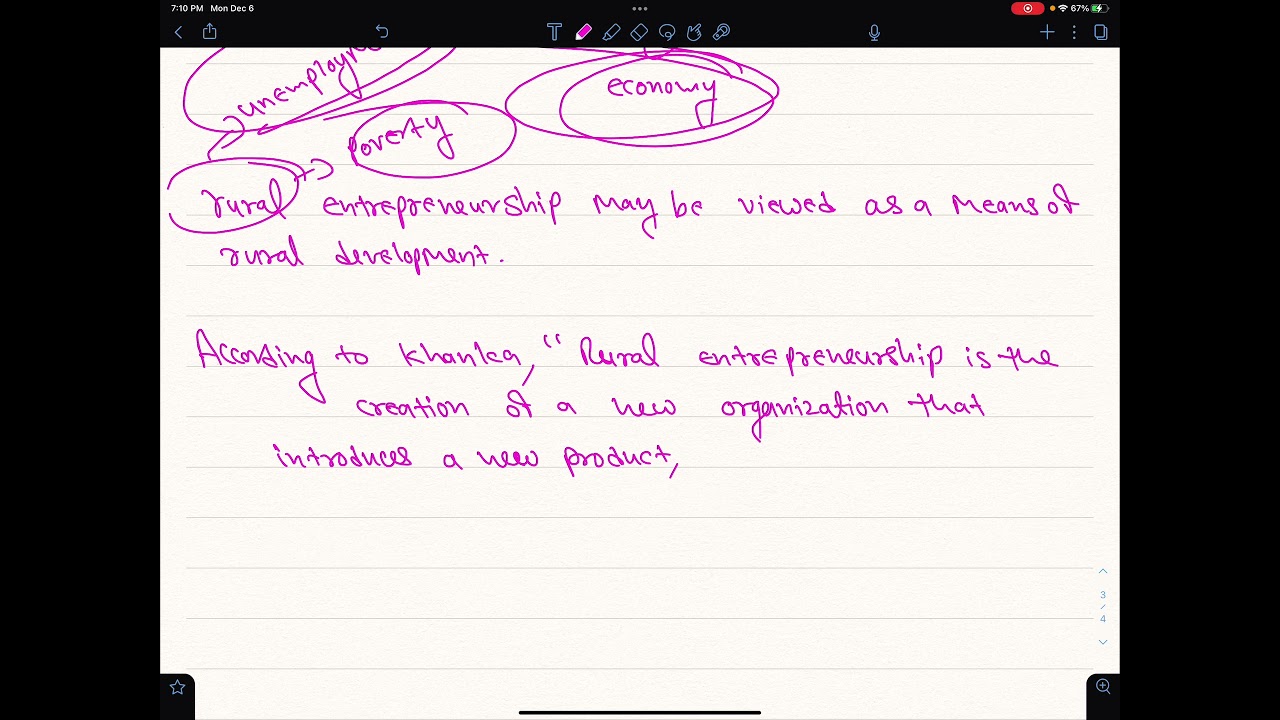 7:10 PM Mon Dec 6
67%
economy
poverty
rural entrepreneurship may be viewed as a means of
rural development.
According to Khanka, “Rural entrepreneurship is the
creation of a new organization that
introduces a new product,
3
/
4